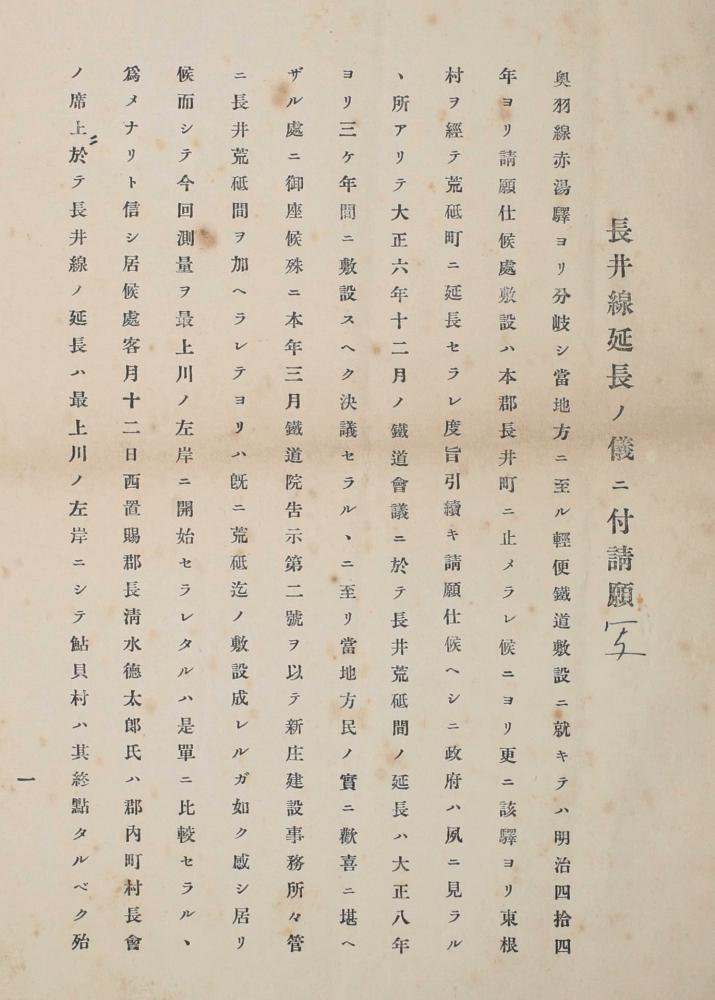 長井線延長ノ儀ニ付請願写
奥羽線赤湯驛ヨリ分岐シ當地方ニ至ル輕便鐵道敷設ニ就キテハ明治四拾四
年ヨリ請願仕候處敷設ハ本郡長井町ニ止メラレ候ニヨリ更ニ該驛ヨリ東根
村ヲ經テ荒砥町ニ延長セラレ度旨引續キ請願仕候ヘシニ政府ハ夙ニ見ラル
ヽ所アリテ大正六年十二月ノ鐵道會議ニ於テ長井荒砥間ノ延長ハ大正八年
ヨリ三ケ年間ニ敷設スヘク決議セラルヽニ至リ當地方民ノ實ニ歡喜ニ堪ヘ
ザル處ニ御座候殊ニ本年三月鐵道院告示第二號ヲ以テ新庄建設事務所々管
ニ長井荒砥間ヲ加ヘラレテヨリハ旣ニ荒砥迄ノ敷設成レルガ如ク感シ居リ
候而シテ今回測量ヲ最上川ノ左岸ニ開始セラレタルハ是單ニ比較セラルヽ
爲メナリト信シ居候處客月十二日西置賜郡長淸水德太郎氏ハ郡內町村長會
ノ席上於テ長井線ノ延長ハ最上川ノ左岸ニシテ鮎貝村ハ其終點タルベク殆
一